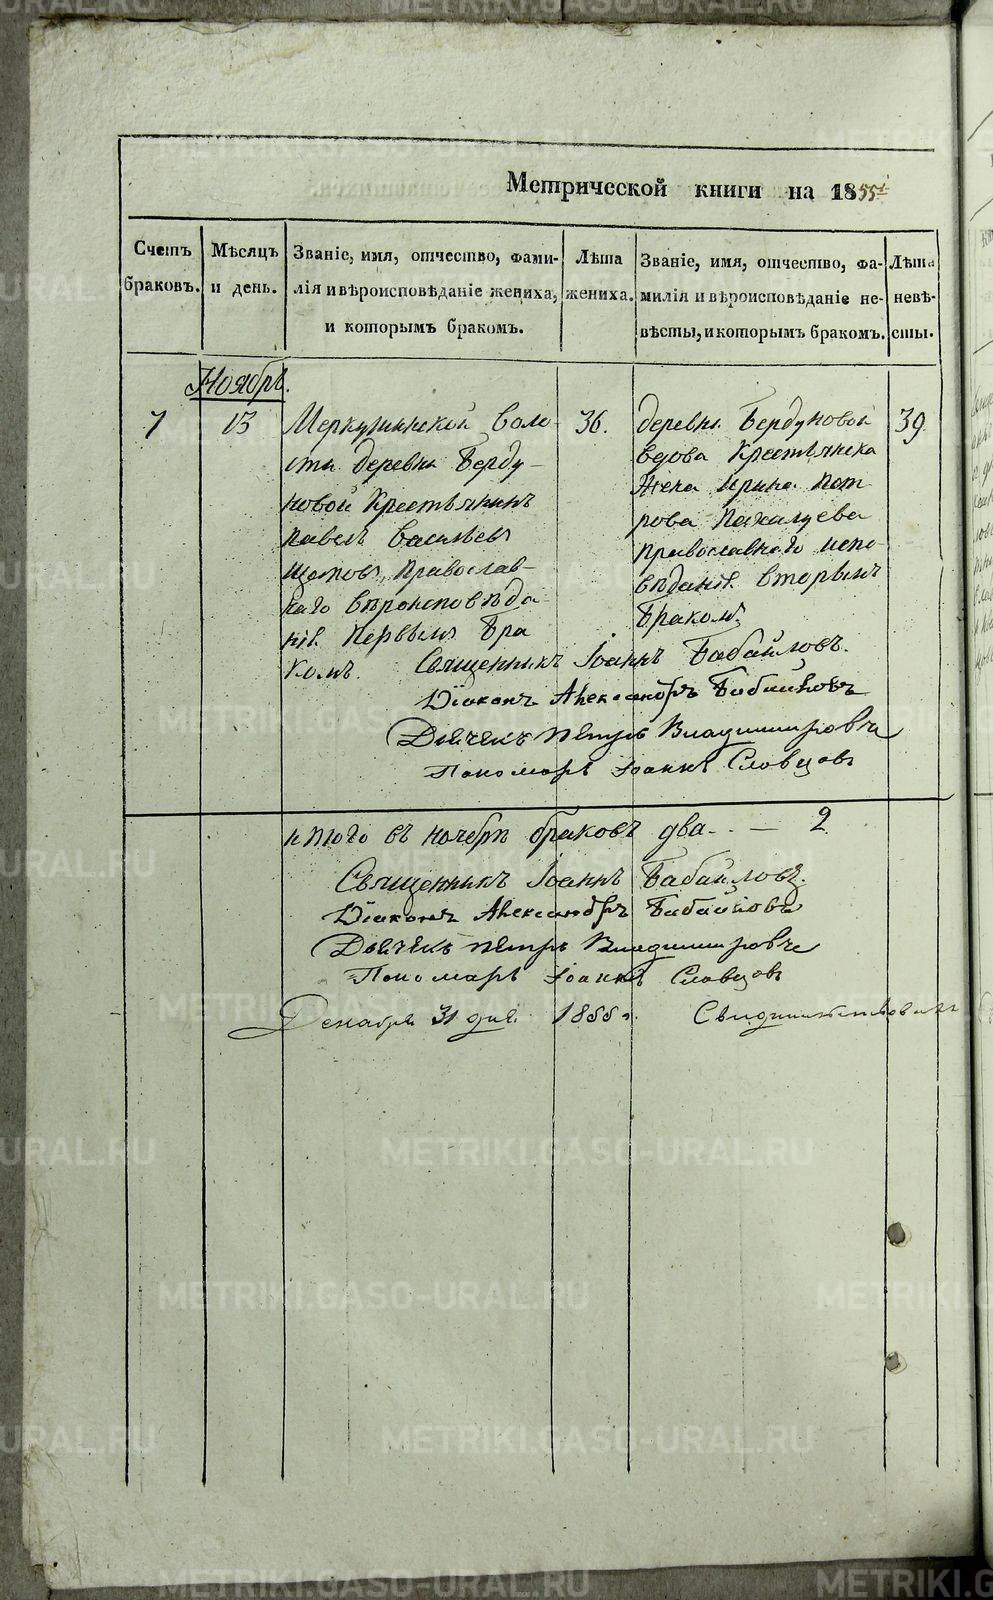 Метрической книги на 1855й
Счетъ браковъ.
Мѣсяцъ и день.
Званіе, имя, отчество, фами-
лія и вѣроисповѣданіе жениха,
и которымъ бракомъ.
Лѣта жениха.
Званіе, имя, отчество, фа-
милія и вѣроисповѣданіе не-
вѣсты, и которымъ бракомъ.
Лѣта невѣ-
сты.
Ноябрь.
7
13
Меркушинской воло
сти деревни Берду-
новой Крестьянинъ
Павелъ Васильевъ
Щетовъ, Православ-
наго вѣроисповѣда
нія. Первымъ бра
комъ.
36.
деревни Бердуновой
вдова Крестьянска
Жена Ирина Пет
рова Пахалуева
Православнаго испо-
вѣданія. вторымъ
бракомъ.
39
Священникъ Іоаннъ Бабайловъ.
Діаконъ Александръ Бабайловъ
Дьячекъ Петръ Владимировъ
Пономарь Іоаннъ Словцовъ
Итого въ ноябрѣ браковъ два - 2
Священникъ Іоаннъ Бабайловъ.
Діаконъ Александръ Бабайловъ
Дьячекъ Петръ Владимировъ
Пономарь Іоаннъ Словцовъ
Декабря 31 дня 1855 г. Свидѣтельствовалъ
METRIKI.GASO-URAL.RU